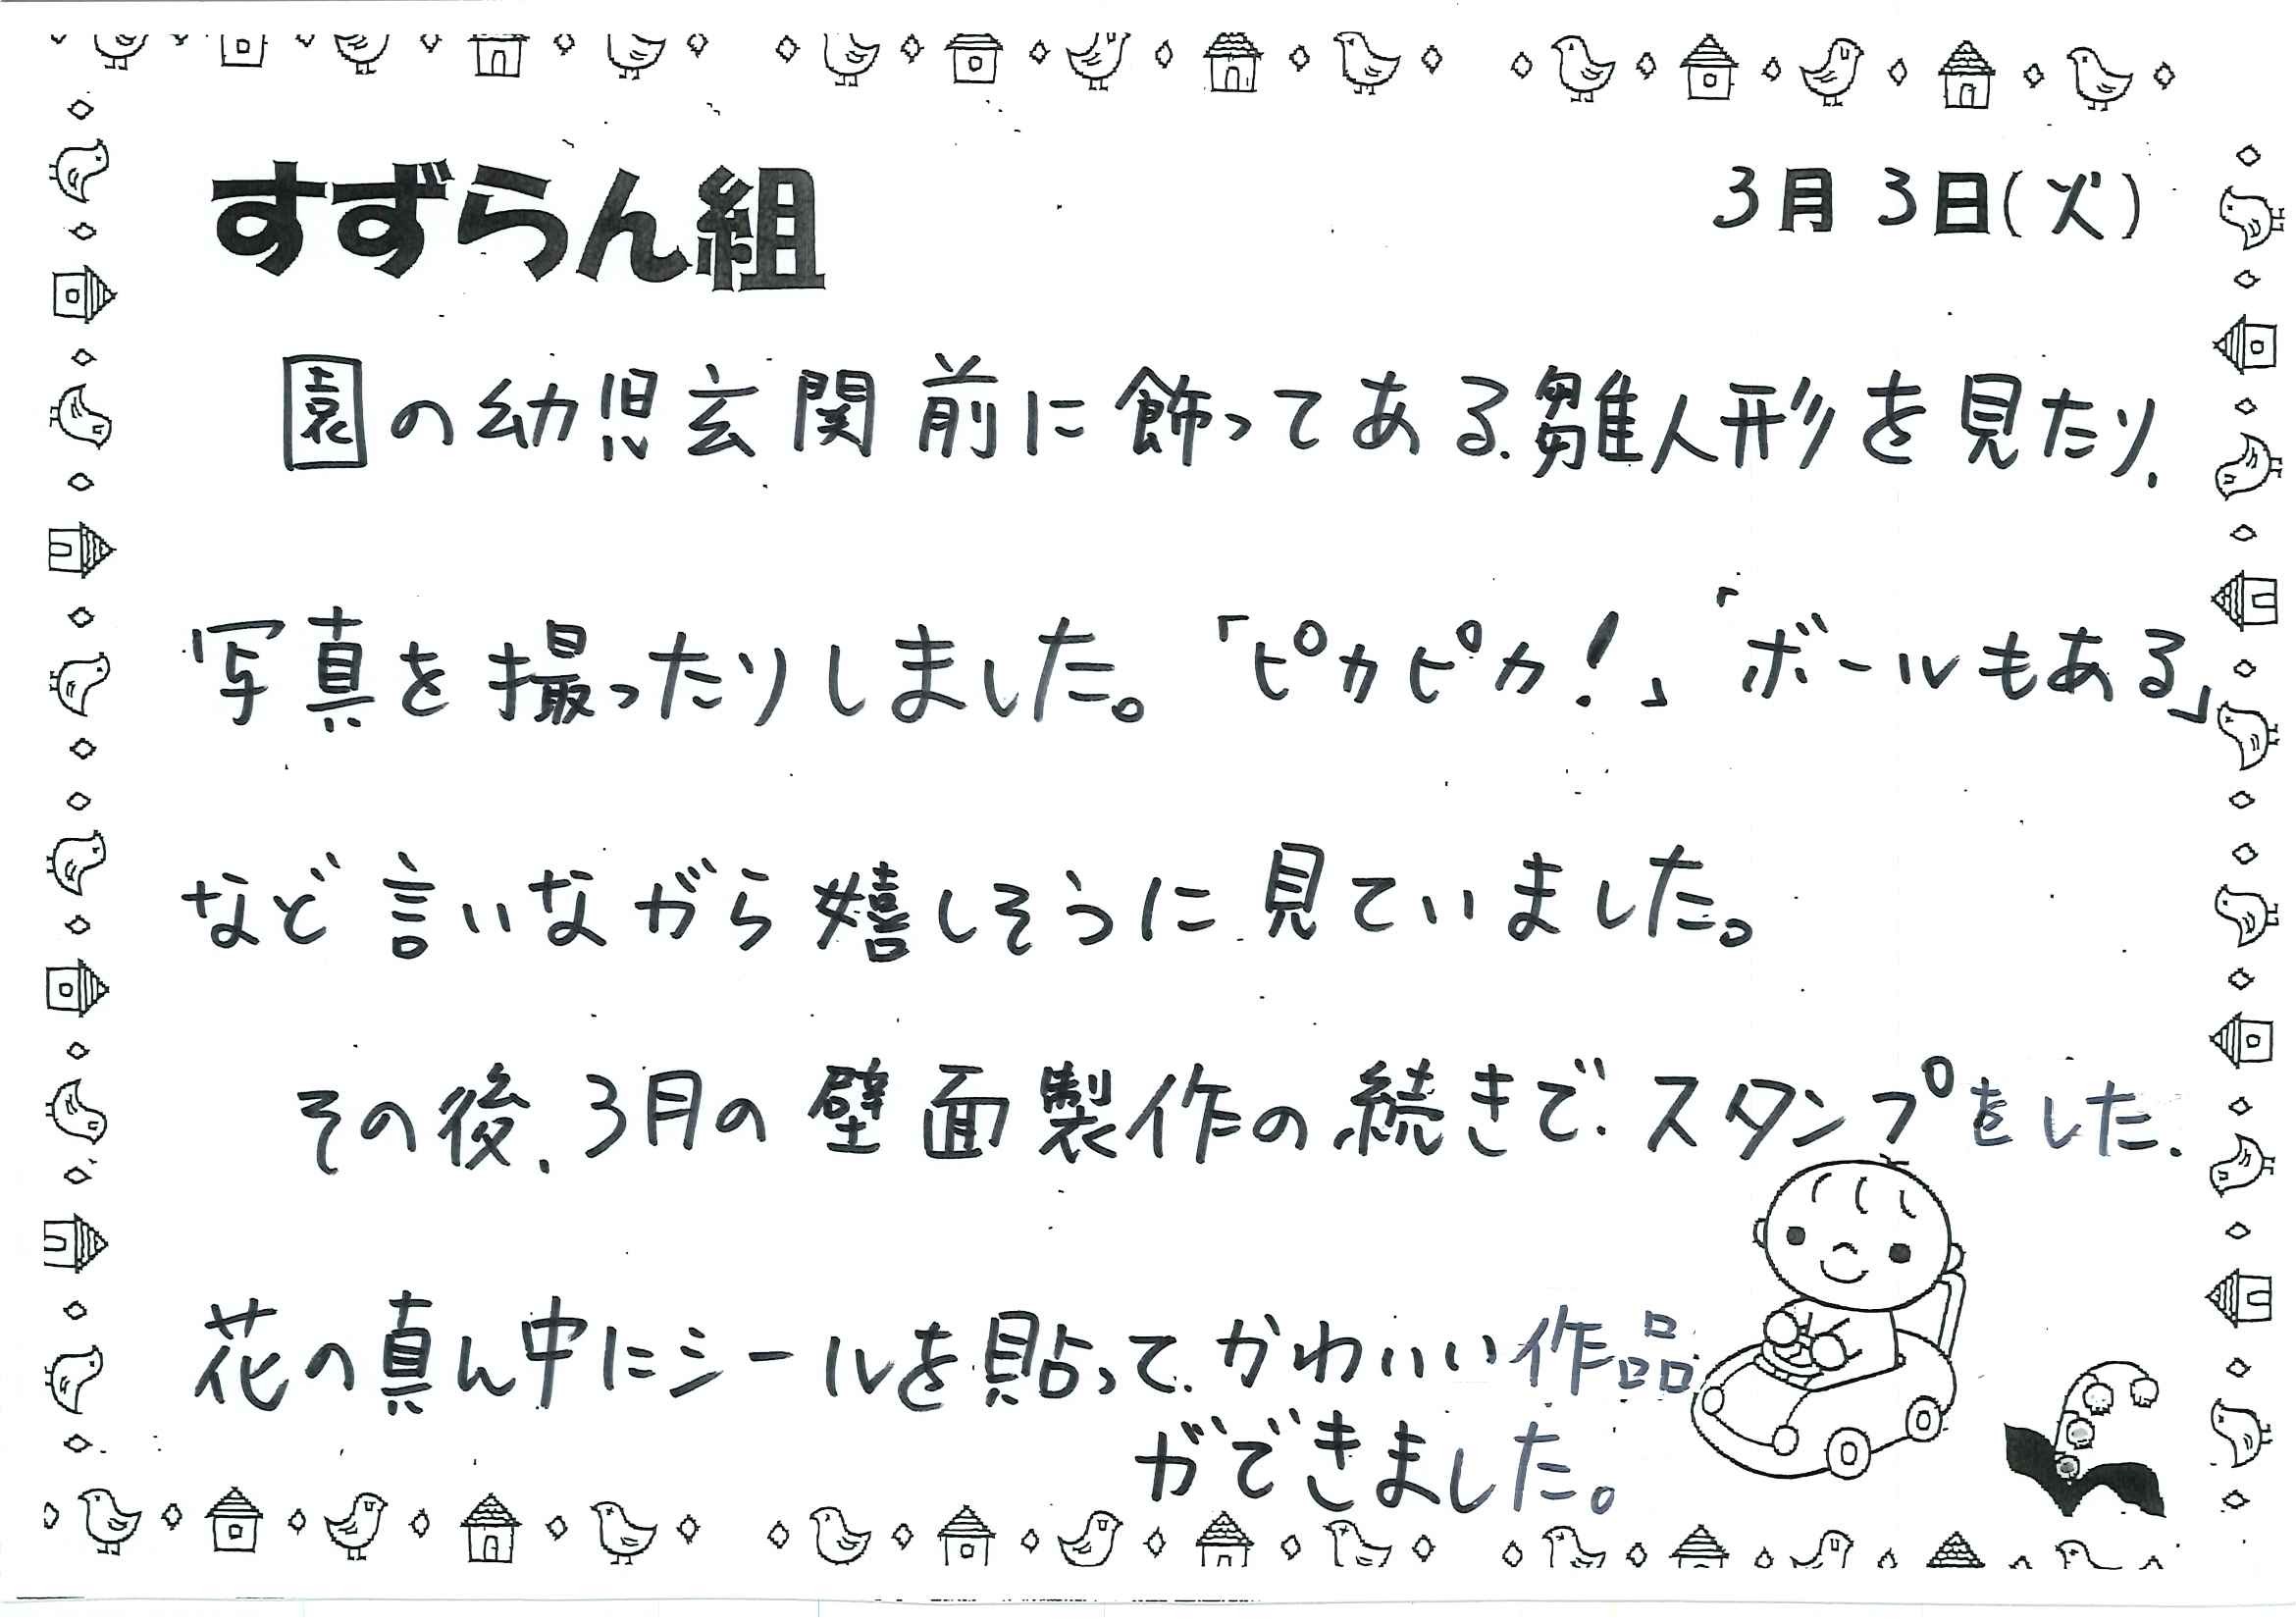 すずらん組
3月3日(火)
園の幼児玄関前に飾ってある、雛人形を見たり、
写真を撮ったりしました。「ピカピカ!」「ボールもある」
など言いながら嬉しそうに見ていました。
その後、3月の壁面製作の続きで、スタンプをした、
花の真ん中にシールを貼って、かわいい作品
ができました。